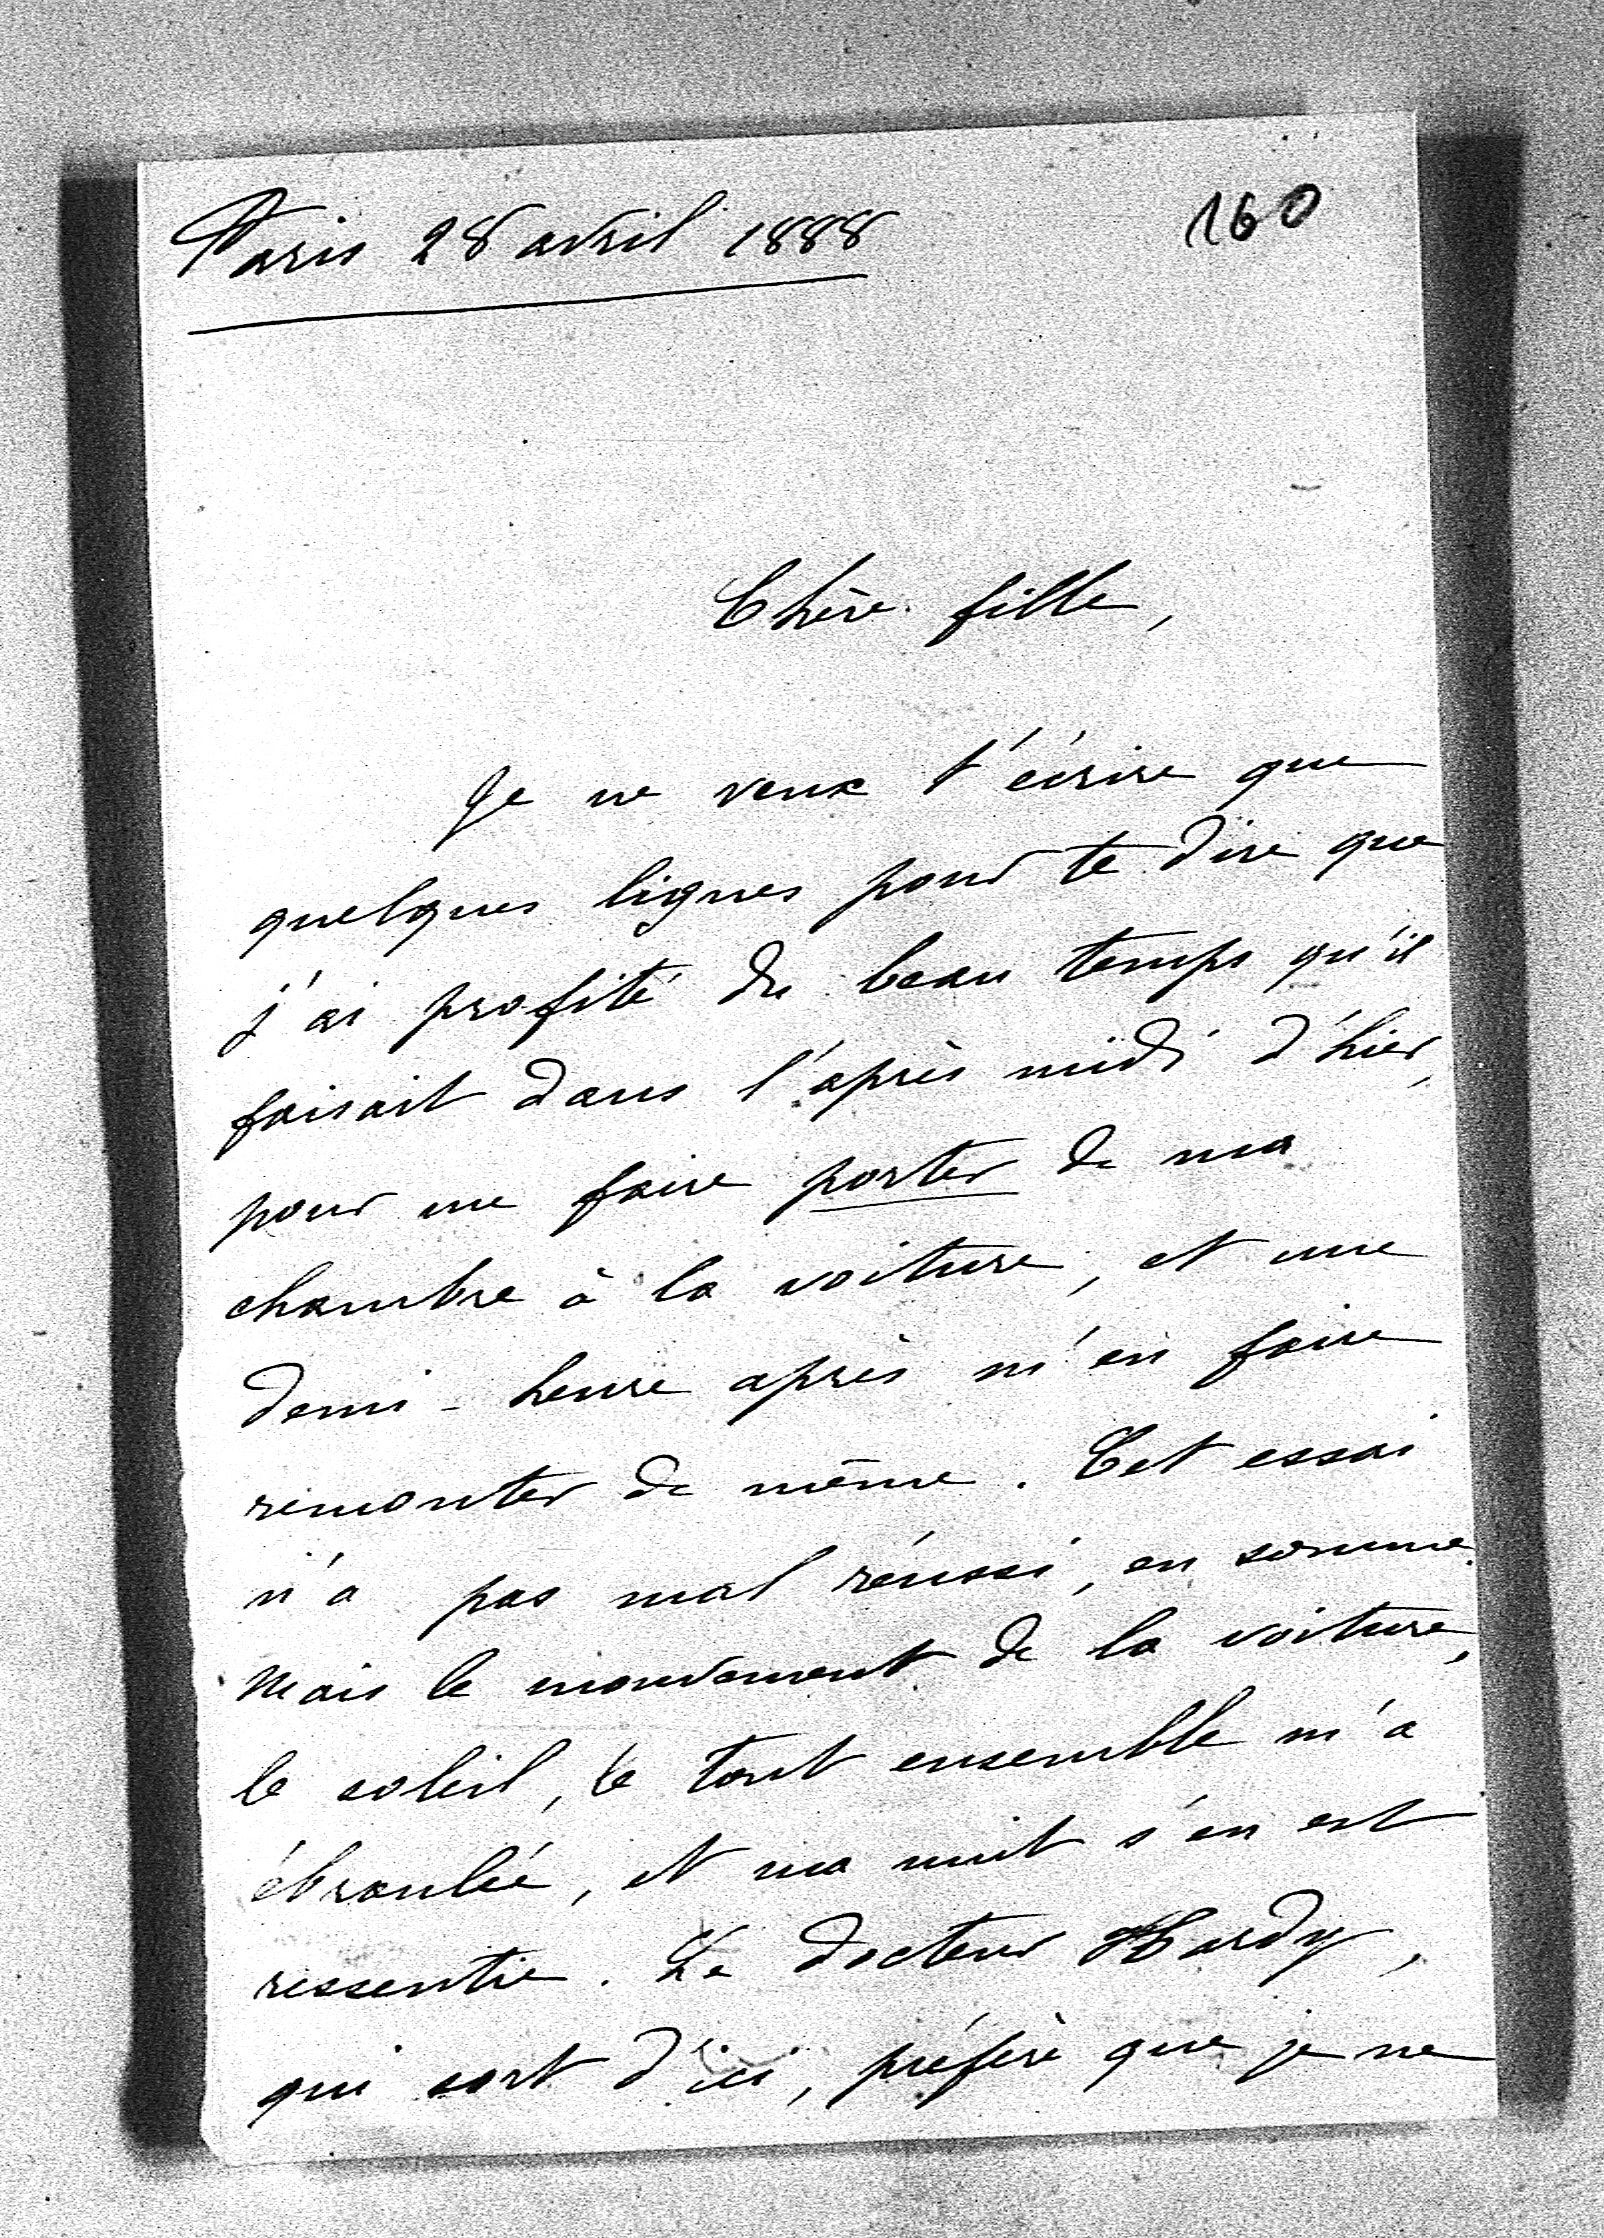 Paris 28 avril 1888
160
Chère fille,
Je ne veux t'écrire que
quelques lignes pour te dire que
j'ai profité du beau temps qu'il
faisait dans l'après midi d'hier,
pour me faire porter de ma
chambre à la voiture, et une
demi-heure après m'en faire
remonter de même. Cet essai
n'a pas mal réussi, en somme.
Mais le mouvement de la voiture,
le soleil, le tout ensemble m'a
ébranlée, et ma nuit s'en est
ressentie. Le docteur Hardy,
qui sort d'ici, préfère que je ne